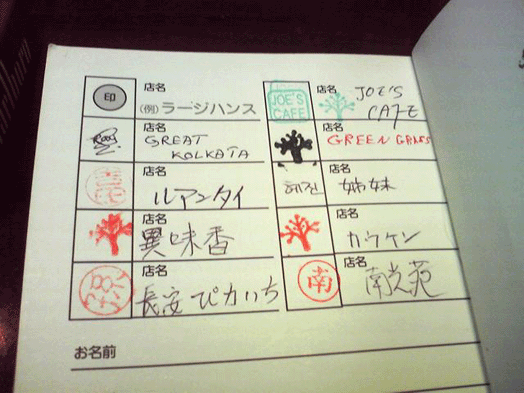 印
店名
(例) ラージハンス
店名
GREAT
KOLKATA
店名
ルアンタイ
店名
異味香
店名
長安 ぴかいち
JOE'S
CAFE
店名
JOE'S
CAFE
店名
GREEN GRASS
店名
姉妹
店名
カウケン
南
店名
南光苑
お名前